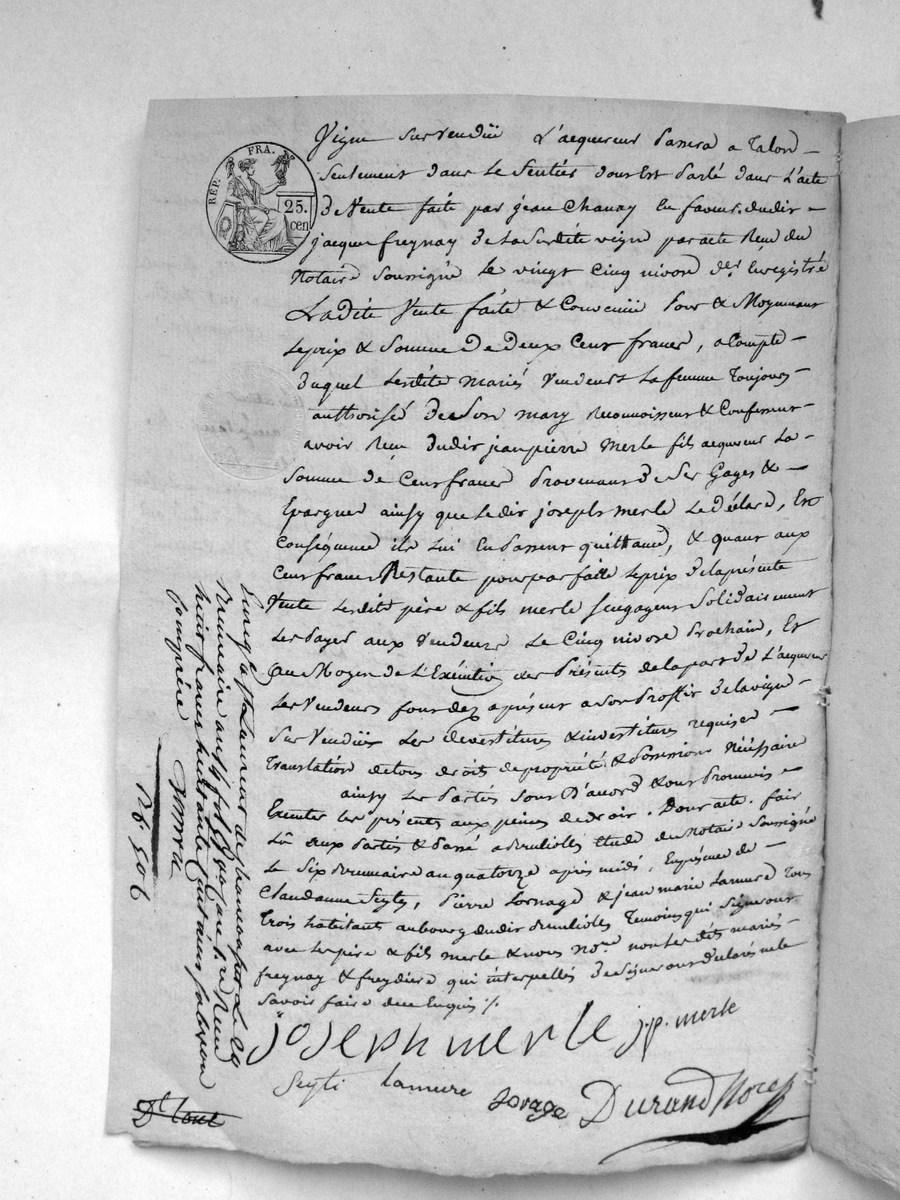 REP. FRA.
25. cen
Vigne survendüe L'acquereur passera a talon
Seulement dans Le Sentier dont est parlé dans L'acte
de Vente faite par jean Chanay en faveur dudit
jacque freynay de La Surdite vigne par acte Reçu du
Notaire Soussigné Le vingt Cinq nivose der. Enregistré
Ladite Vente faite & Convenüe pour & Moyennant
Le prix & Somme de deux Cent francs, a Compte
duquel Lesdits mariés Vendeurs La femme Toujours
authorisé de Son mary Reconnoissent & Confessent
avoir Reçu dudit jean pierre Merle fils acquereur La
Somme de Cent francs provenants de Ses Gages &
Epargnes ainsy que Ledit joseph merle Le déclare, En
Conséquence ils Lui En passent quittance, & quant aux
Cent francs Restants pour parfaite Le prix de La présente
Vente Lesdits père & fils merle Sengagent Solidairement
Les payer aux Vendeurs Le Cinq nivose prochain, Et
au Moyen de L'Exécution des Présents de La part de L'acquereur
Les Vendeurs font dez aprésent a Son proffit de La vigne
Survendüe Les devestitures & investitures requises
Translation de tous droits de propriété & possession Nécéssaire
ainsy Les Parties Sont D'accord & ont Promis
Exécuter Les présents aux peines de droit. Dont acte. fait
Lû aux Parties & Passé a étude du Notaire Soussigné
Le Six brumaire an quatorze après midi, En présence de
Claudanne Seyti, pierre Lornage & jean marie Lamure Tous
Trois habitant au bourg dudit Témoins qui Signeront
avec Les père & fils merle & nous Nore. non Les dits mariés
freynay & freydiere qui interpellés de Signer ont déclaré ne le
Savoir faire de ce Enquis ./.
Joseph merle j.p. merle
Seyti Lamure Lornage Durand Nore
Enregistré a St Laurent de chamousset Le
Brumaire an Reçu
huit francs huitante
Compriere
Rf. 906